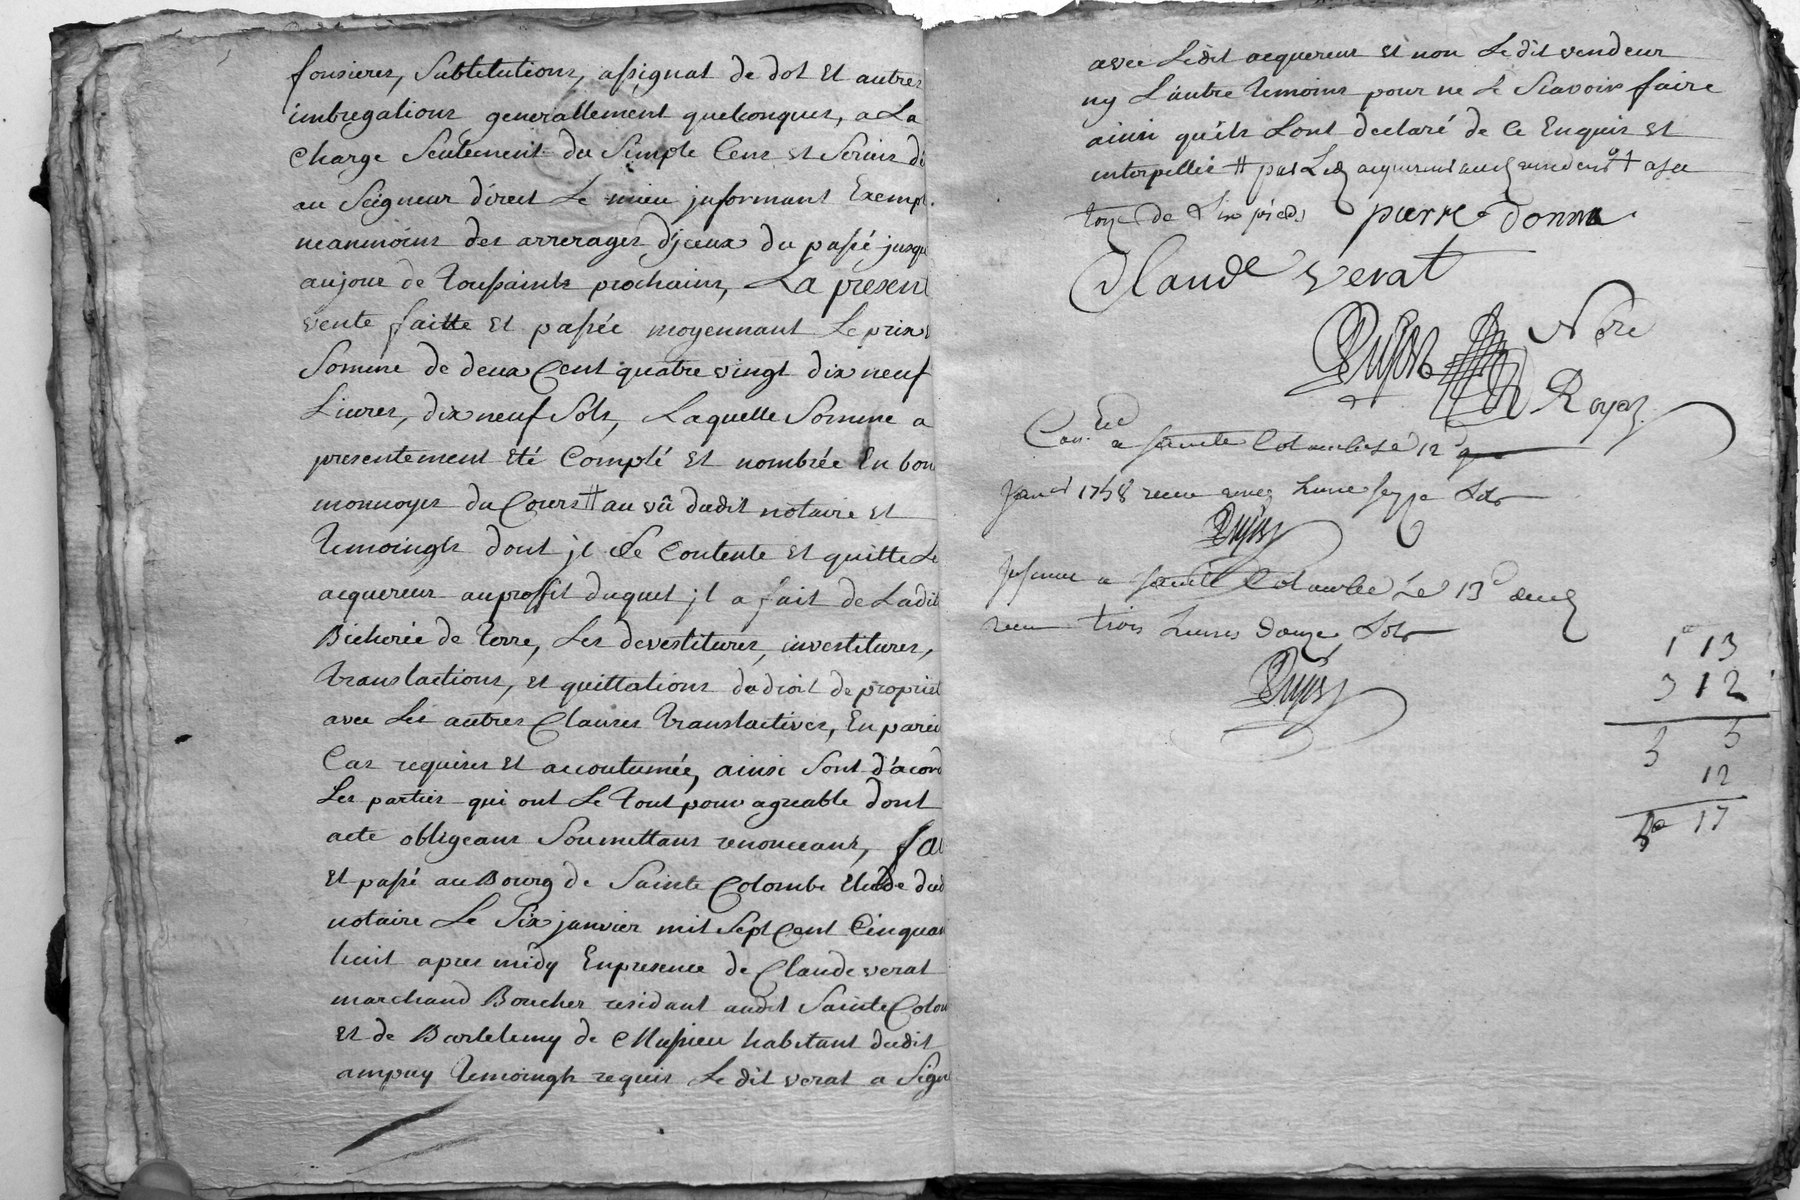 fonsieres, Subtitutions, assignat de dot et autres
imbregations generallement quelconques, a La
Charge Seulement du Simple Cens et Servis dû
au Seigneur direct Le mieu informant Exempt.
neanmoins des arrerages d'jceux du passé jusqu
aujour de Toussaints prochains, La present
vente faitte et passée moyennant Le prix et
Somme de deux Cent quatre vingt dix neuf
Livres, dix neuf Sols, Laquelle Somme a
presentement eté Compté et nombrée En bon
monnoyes du Cours # au vû dudit notaire et
Temoingts dont jl Se Contente et quitte Le
acquereur auproffit duquel jl a fait de Ladit
Bicherée de Terre, Les devestitures, investitures,
Translactions, et quittations du droit de propriet
avec Les autres Clauses Translactives, En pareil
Cas requises et accoutumée, ainsi Sont d'acord
Les parties qui ont Le Tout pour agreable dont
acte obligeans Soumettans renonceans, fai
et passé au Bourg de Sainte Colombe Etude dud
notaire Le Six janvier mil Sept Cent Cinquan
huit apres midy En presence de Claude verat
marchand Boucher residant audit Sainte Colom
et de Bartelemy de Massieu habitant dudit
ampuy Temoingts requis Le dit verat a Signé
avec Ledit acquereur et non Le dit vendeur
ny L'autre Temoins pour ne Le Sçavoir faire
ainsi qu'ils Lont declaré de Ce Enquis et
interpellés # par Led acquereur aud vendeur + a sa
de Six pieds pierre donna
Claude verat
Dujast Nore
Royal
Con.lé a Sainte Colombe Le 12e
Janer 1758 receu livre seize Sols
Dujast
Insinué a Sainte Colombe Le 13e dud
receu trois Livres douze Sols
Dujast
1# 13
3 12
5 5
12
5# 17